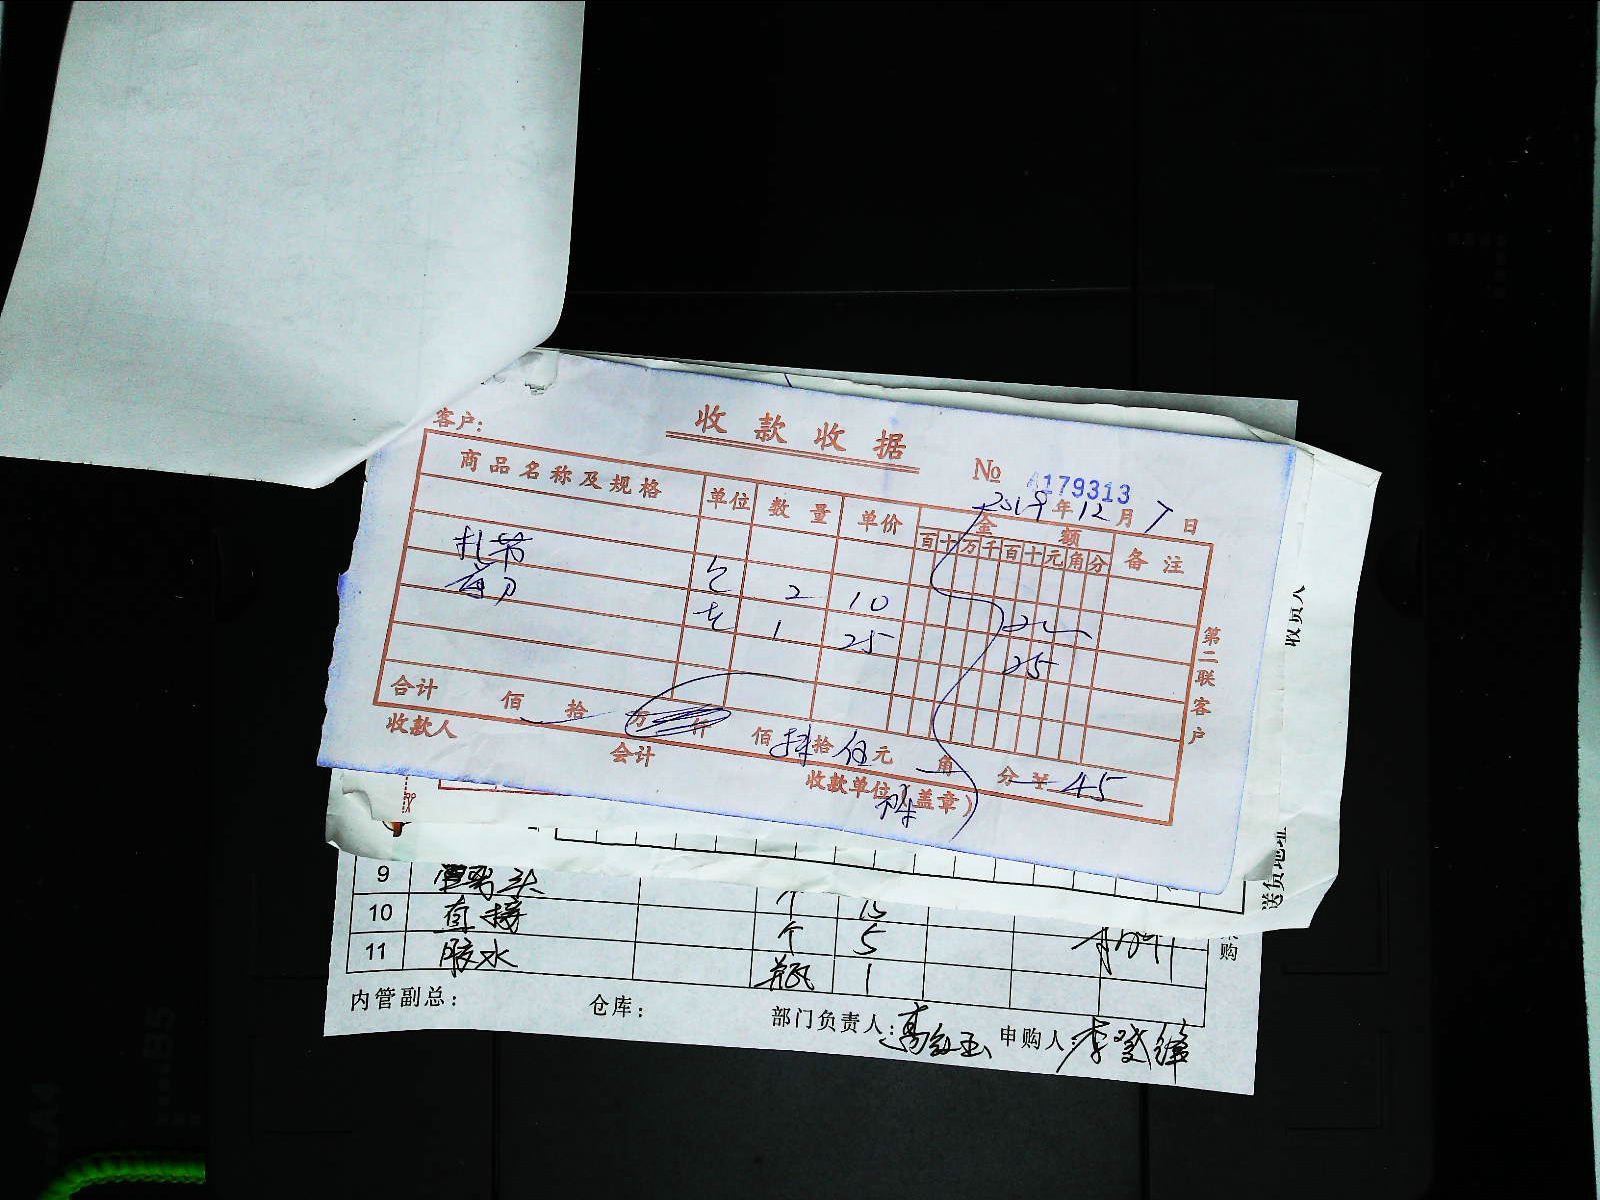 收款收据
客户:
No A179313
2019年12月7日
商品名称及规格 单位 数量 单价 金额 备注
百十万千百十元角分
扎带 个 2 10 20
剪刀 把 1 25 25
合计 佰 拾 万 仟 佰 肆拾伍元 角 分 ¥ 45
收款人 会计 收款单位(盖章)
第二联客户
收货人
送货地址
9 个 15
10 直接 个 5
11 胶水 瓶 1
采购
内管副总: 仓库: 部门负责人: 申购人: